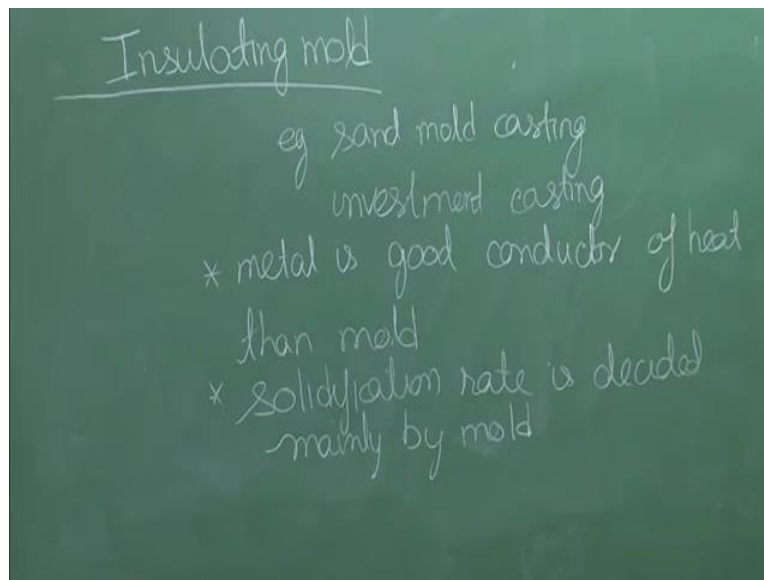 Insulating mold
eg sand mold casting
investment casting
* metal is good conductor of heat
than mold
* solidification rate is decided
mainly by mold